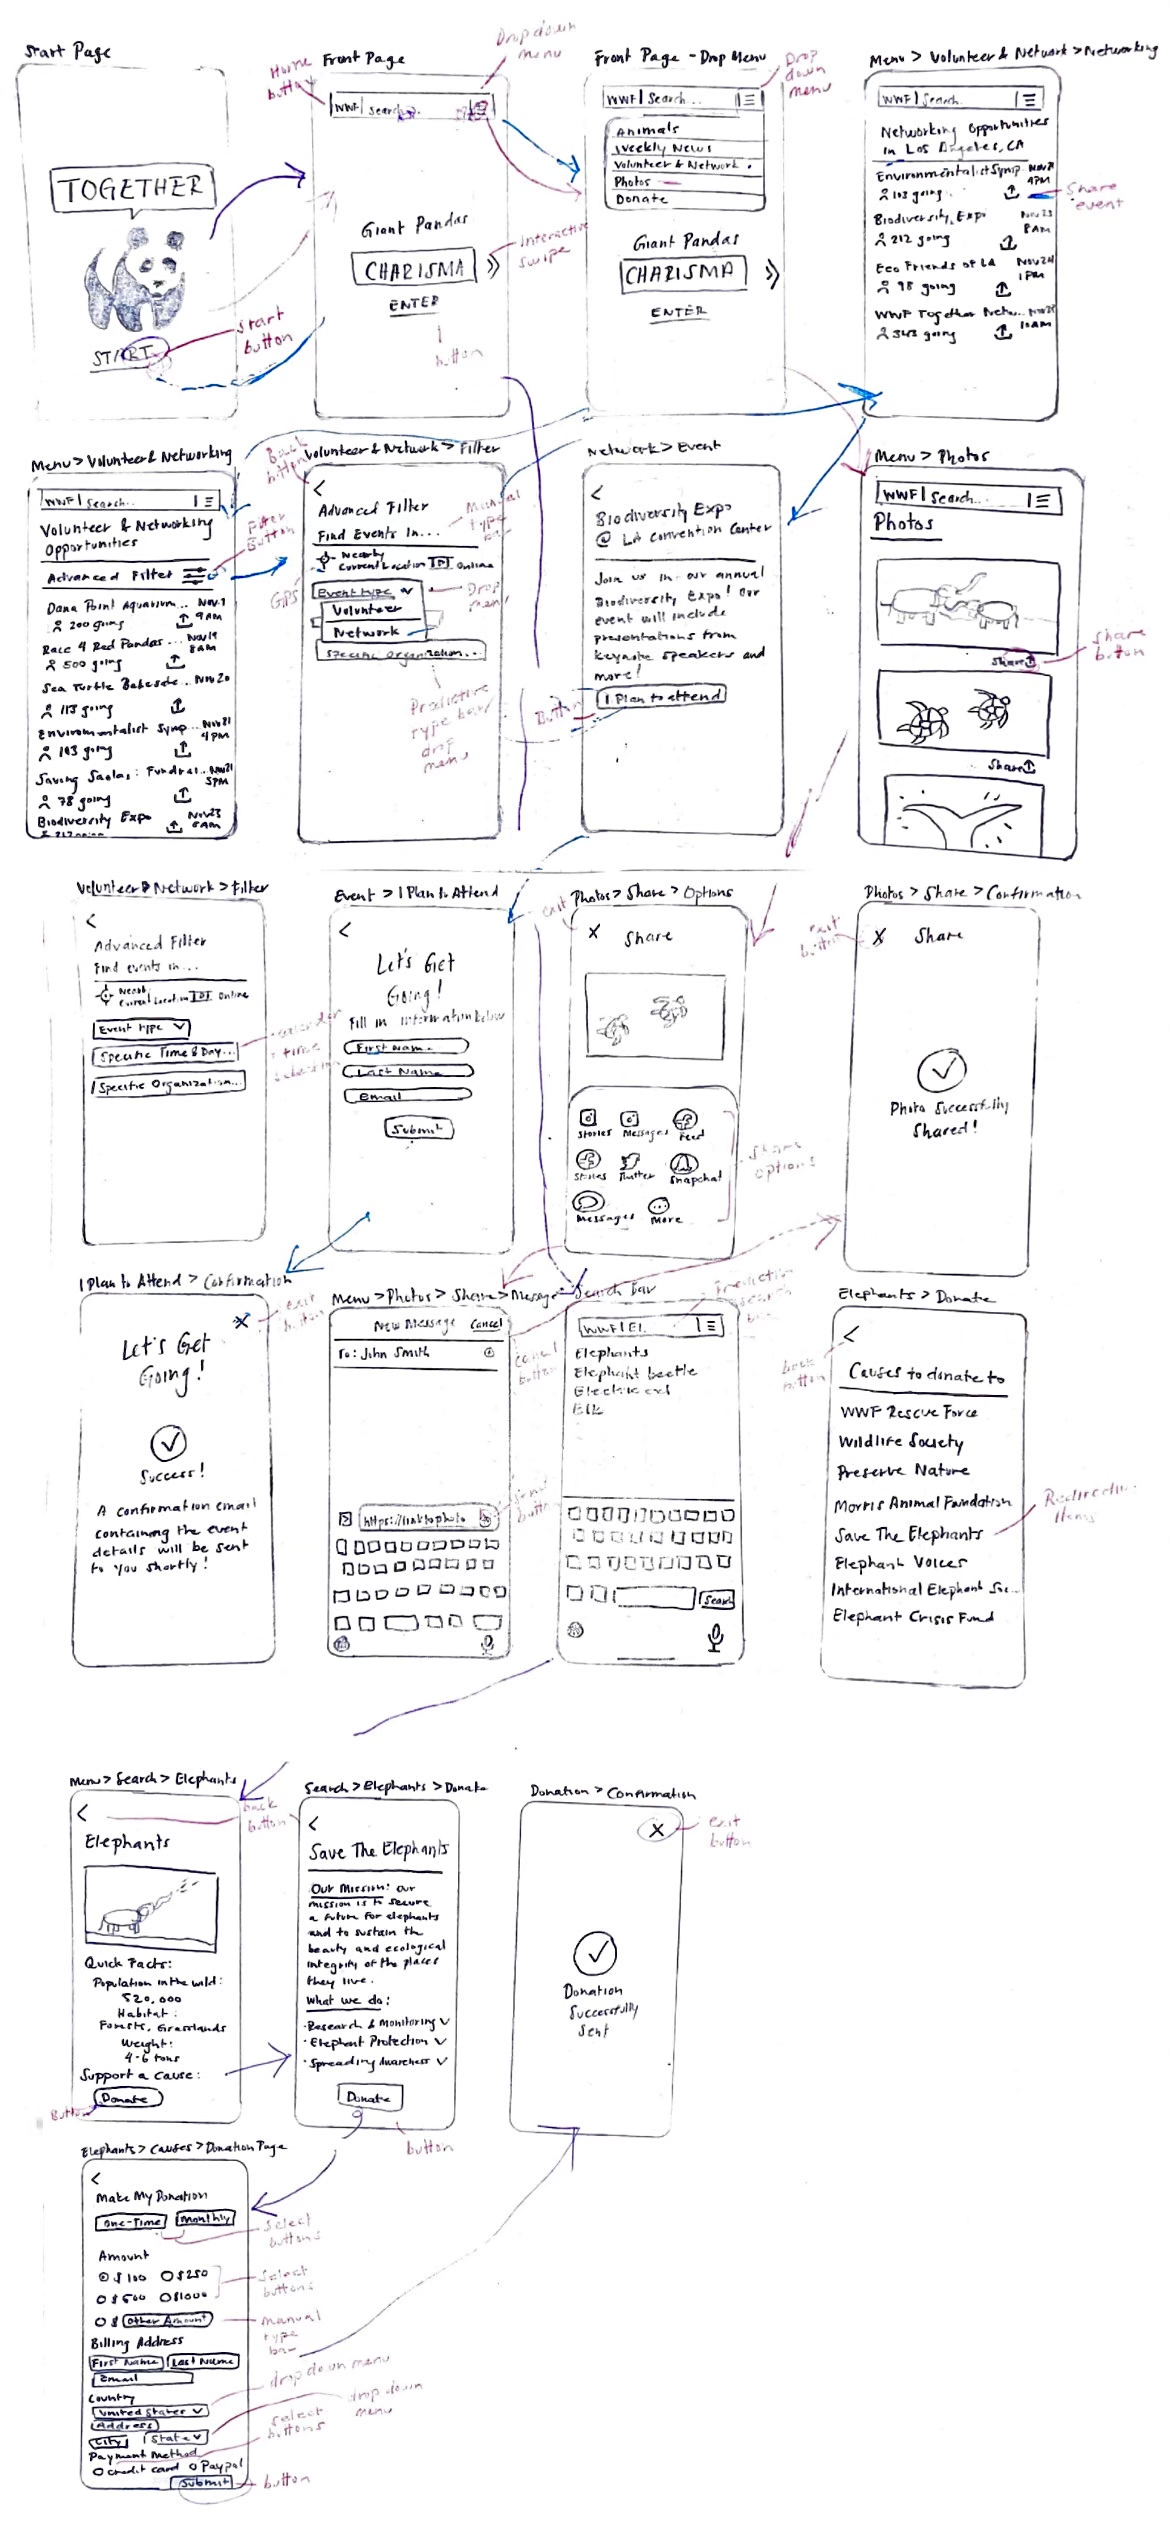 Start Page
TOGETHER
START
Start
button
Home
button
Front Page
Dropdown
menu
WWF| Search...
Giant Pandas
CHARISMA
ENTER
Interactive
Swipe
button
Front Page - Drop Menu
Drop
down
menu
WWF| Search...
Animals
Weekly News
Volunteer & Network
Photos
Donate
Giant Pandas
CHARISMA
ENTER
Menu > Volunteer & Network > Networking
WWF| Search..
Networking Opportunities
in Los Angeles, CA
Environmentalist Symp. Nov 21
4PM
103 going..
Share
event
Biodiversity Expo Nov 23
8AM
212 going
Eco Friends of LA Nov 24
1PM
98 going
WWF Together Netw...
10AM
343 going
Menu > Volunteer & Networking
WWF| Search...
Volunteer & Networking
Opportunities
Advanced Filter
Filter
Button
Dana Point Aquarium... Nov 1
9AM
200 going
Race 4 Red Pandas... Nov 19
8AM
500 going
Sea Turtle Nov 20
113 going
Environmentalist Symp... Nov 21
4PM
103 going
Saving Saolas: Fundrai... Nov 21
5PM
78 going
Biodiversity Expo Nov 23
8AM
Back
button
Volunteer & Network > Filter
<
Advanced Filter
Find Events In...
Manual
type
bar
Nearby
Current Location Online
GPS
Event type
Drop
menu
Volunteer
Network
Specific Organization...
Predictive
type bar
drop
menu
Network > Event
<
Biodiversity Expo
@ LA Convention Center
Join us in our annual
Biodiversity Expo! Our
event will include
presentations from
keynote speakers and
more!
I Plan to attend
Button
Menu > Photos
WWF| Search...
Photos
Share
Share
button
Share
Volunteer & Network > Filter
<
Advanced Filter
Find events in...
Nearby
Current Location Online
Event type
Specific Time & Day...
Specific Organization...
calendar
+ time
selection
Event > I Plan to Attend
<
Let's Get
Going!
Fill in information below
First name
Last Name
Email
Submit
exit
Photos > Share > Options
X Share
Stories Messages Feed
Stories Twitter Snapchat
Messages More
Share
options
Photos > Share > Confirmation
exit
button
X Share
Photo Successfully
Shared!
I Plan to Attend > Confirmation
X
exit
button
Let's Get
Going!
Success!
A confirmation email
containing the event
details will be sent
to you shortly!
Menu > Photos > Share > Message
New Message Cancel
To: John Smith
cancel
button
https://linktophoto
Send
button
Search bar
Prediction
search
WWF| El.
Elephants
Elephant beetle
Electric eel
Elk
Search
Elephants > Donate
<
back
button
Causes to donate to
WWF Rescue Force
Wildlife Society
Preserve Nature
Morris Animal Foundation
Save The Elephants
Elephant Voices
International Elephant Soc...
Elephant Crisis Fund
Menu > Search > Elephants
<
back
button
Elephants
Quick Facts:
Population in the wild:
520,000
Habitat:
Forests, Grasslands
Weight:
4-6 tons
Support a cause:
Donate
Button
Search > Elephants > Donate
<
Save The Elephants
Our Mission: Our
mission is to secure
a future for elephants
and to sustain the
beauty and ecological
integrity of the places
they live.
What we do:
· Research & Monitoring
· Elephant Protection
· Spreading Awareness
Donate
button
Donation > Confirmation
X
exit
button
Donation
Successfully
Sent
Elephants > Causes > Donation Page
<
Make My Donation
One-Time Monthly
select
buttons
Amount
$100 $250
$500 $1000
select
buttons
$ Other Amount
manual
type
bar
Billing Address
First Name Last Name
Email
Country
United States
dropdown menu
Address
City State
drop down
menu
Payment Method
select
buttons
Credit card Paypal
Submit
button